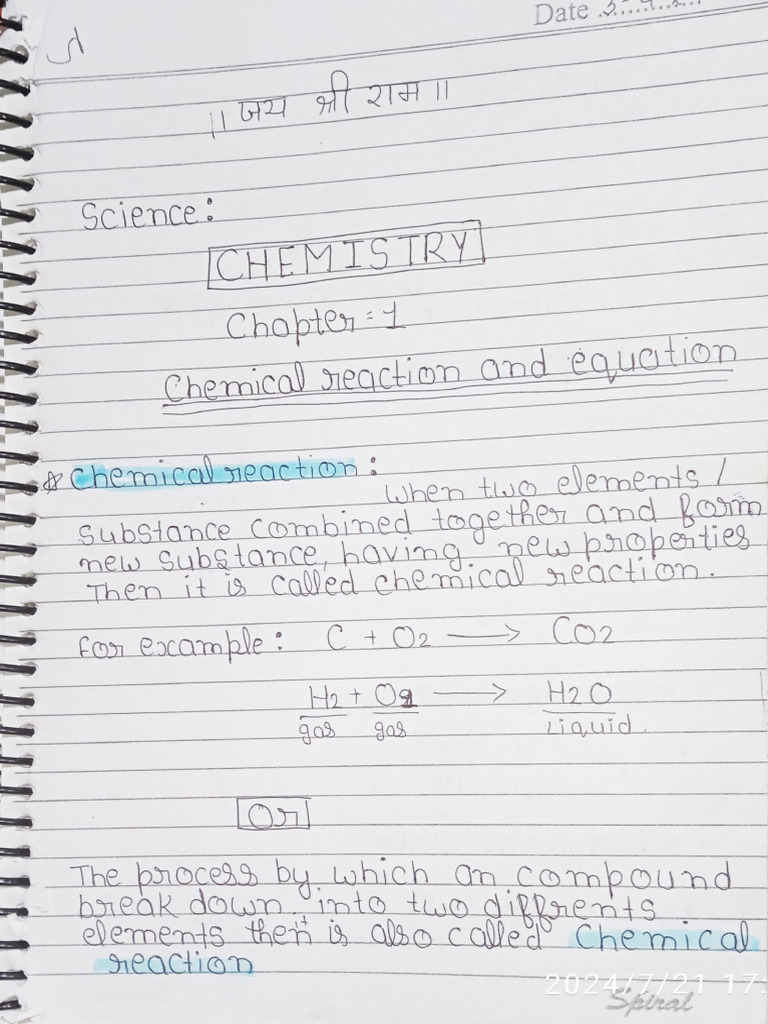 Date
|| जय श्री राम ||
Science:
CHEMISTRY
Chapter = 1
Chemical reaction and equation
Chemical reaction:
When two elements /
substance combined together and form
new substance, having new properties
Then it is called chemical reaction.
for example: C + O2 → CO2
H2 + O2 → H2O
gas gas Liquid.
Or
The process by which an compound
break down into two diffrents
elements then it is also called Chemical
reaction
2024/7/21 17:
Spiral